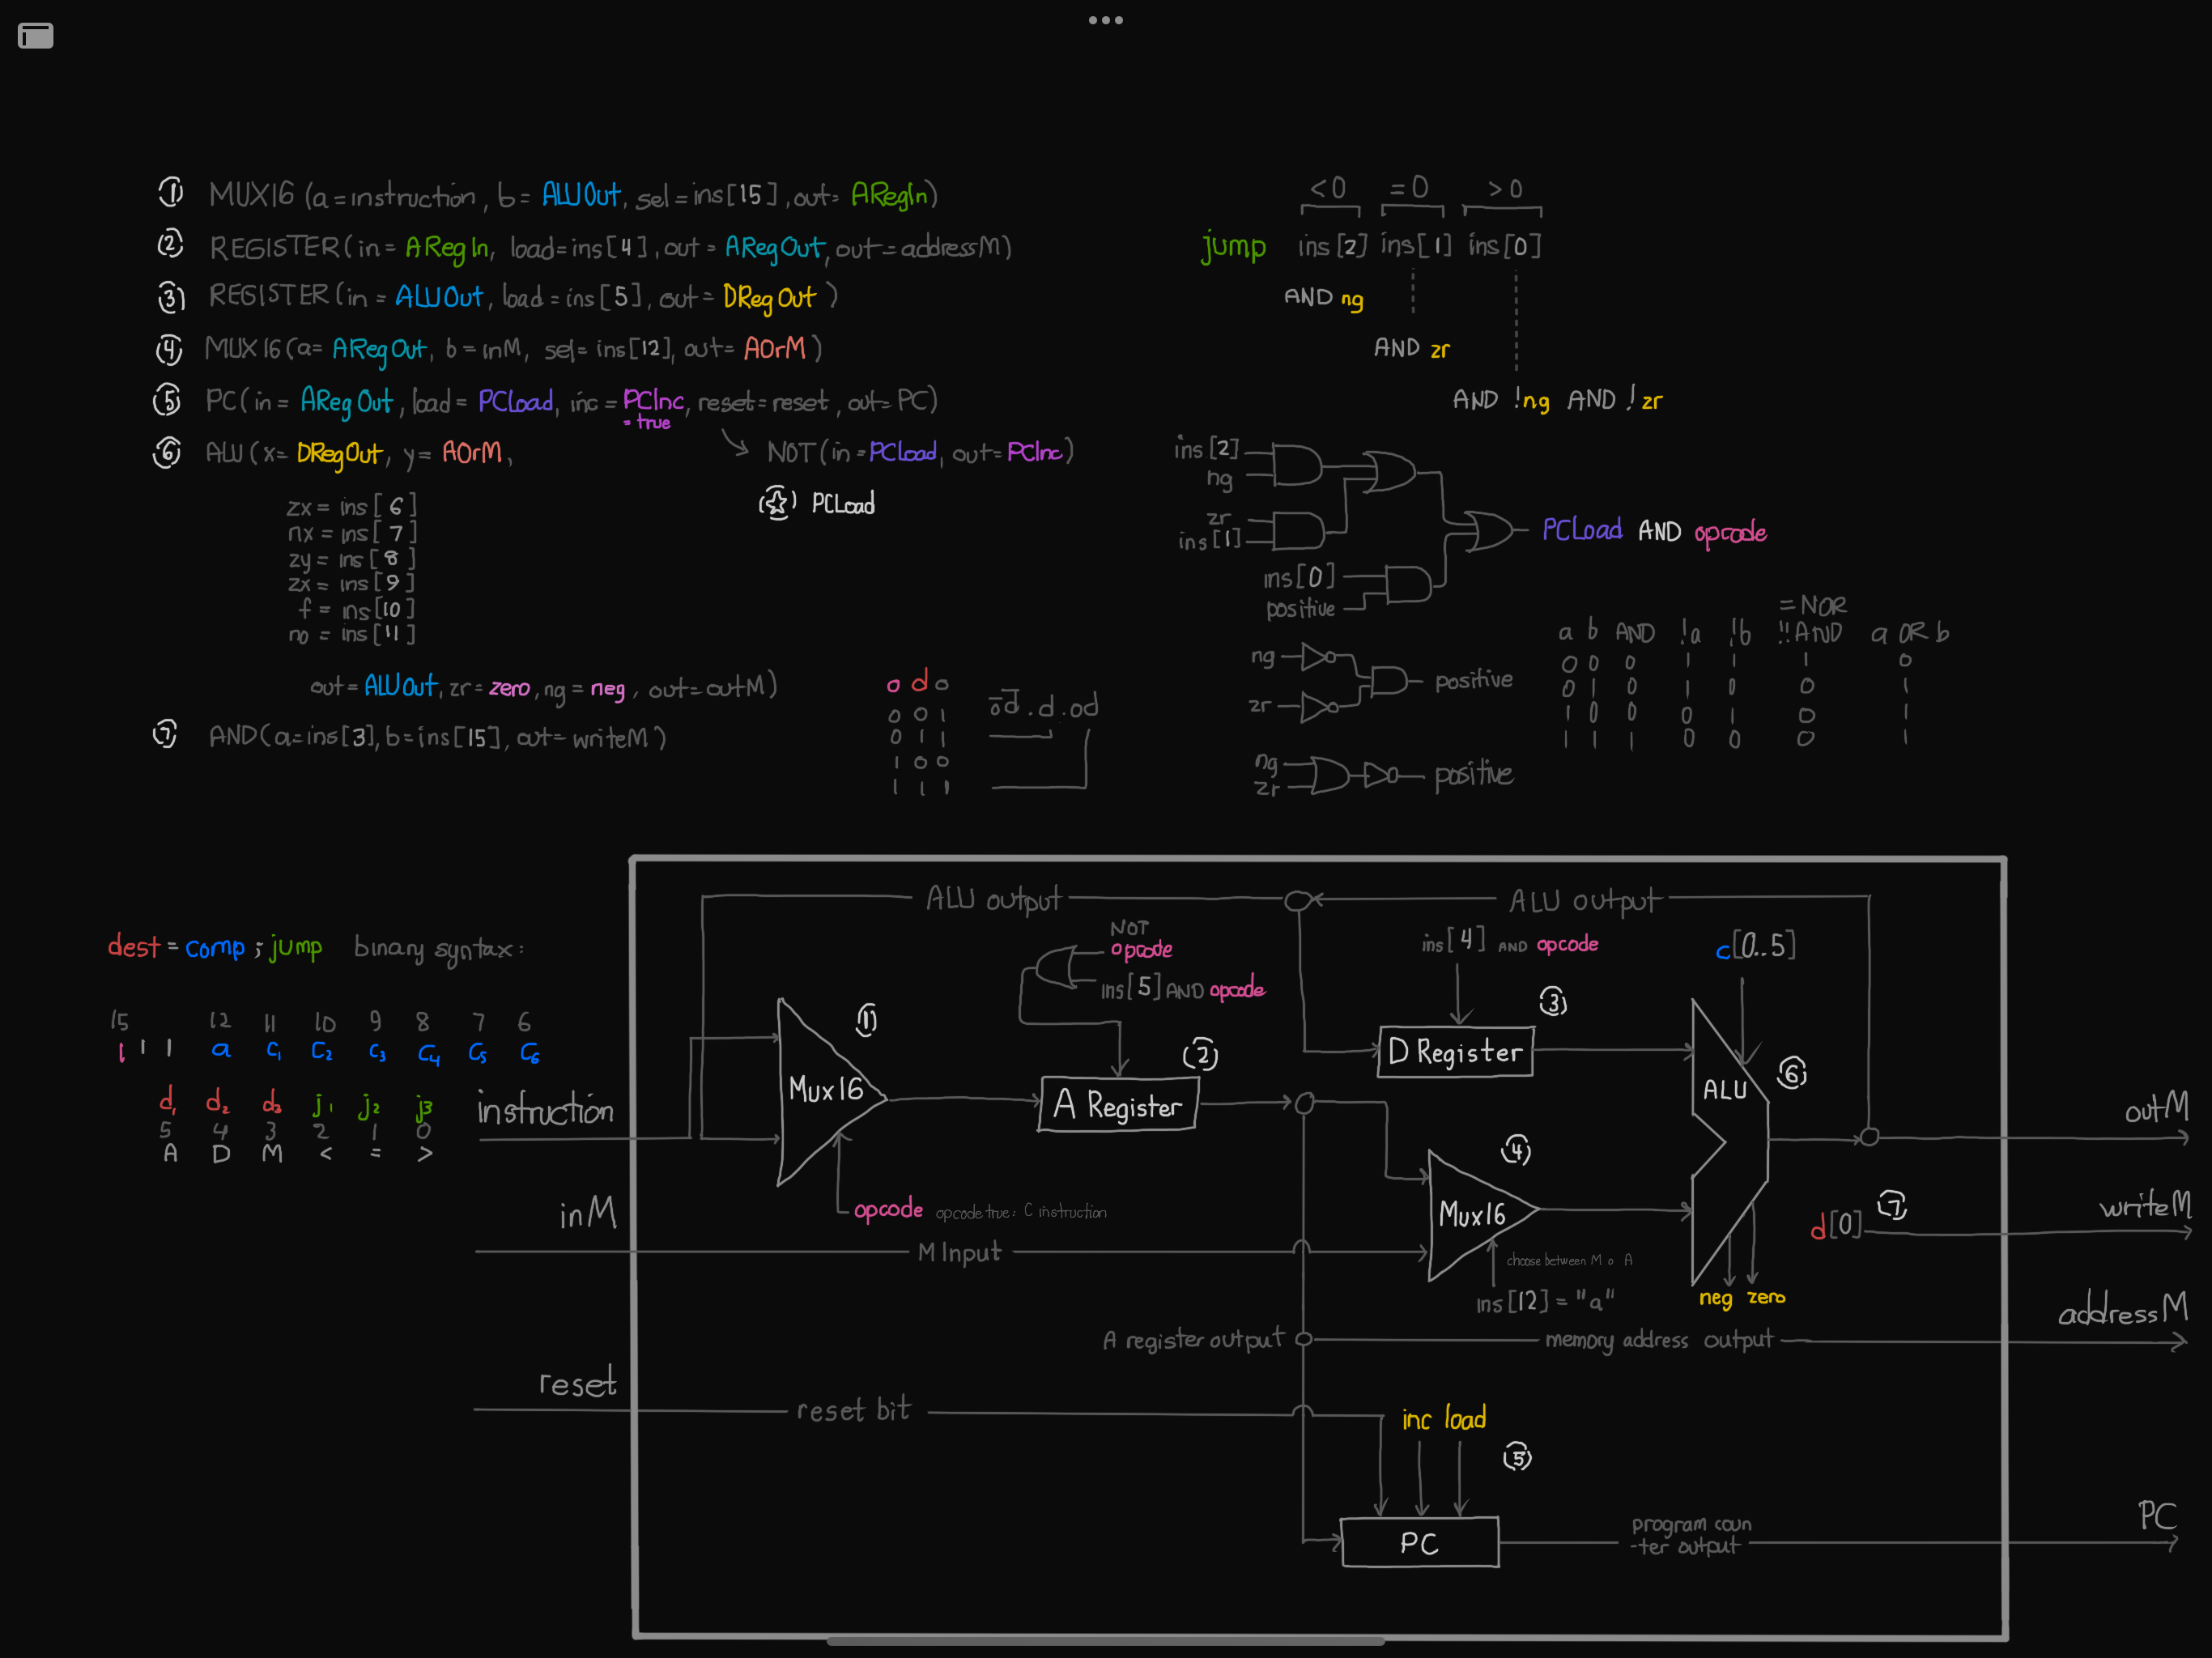 ① MUX16 (a=instruction, b= ALUOut, sel=ins[15], out= ARegIn)
② REGISTER(in= ARegIn, load=ins[4], out= ARegOut, out=addressM)
③ REGISTER(in= ALUOut, load=ins[5], out= DRegOut)
④ MUX16(a= ARegOut, b=inM, sel=ins[12], out= AOrM)
⑤ PC(in= ARegOut, load= PCLoad, inc=PCInc, reset=reset, out=PC)
= true
⑥ ALU(x= DRegOut, y= AOrM,
NOT(in=PCLoad, out=PCInc)
☆ PCLoad
zx = ins[6]
nx = ins[7]
zy = ins[8]
zx = ins[9]
f = ins[10]
no = ins[11]
out= ALUOut, zr=zero, ng=neg, out=outM)
⑦ AND(a=ins[3], b=ins[15], out=writeM)
o d o
0 0 1
0 1 1
1 0 0
1 1 1
od.d.od
<0 =0 >0
jump ins[2] ins[1] ins[0]
AND ng
AND zr
AND !ng AND !zr
ins[2]
ng
zr
ins[1]
PCLoad AND opcode
ins[0]
positive
ng
zr
positive
ng
zr
positive
=NOR
a b AND !a !b !!AND a OR b
0 0 0 1 1 1 0
0 1 0 1 0 0 1
1 0 0 0 1 0 1
1 1 1 0 0 0 1
dest = comp ; jump binary syntax:
15 12 11 10 9 8 7 6
1 1 1 a c1 c2 c3 c4 c5 c6
d1 d2 d3 j1 j2 j3
5 4 3 2 1 0
A D M < = >
instruction
inM
reset
ALU output
ALU output
NOT
opcode
ins[5] AND opcode
ins[4] AND opcode
c[0..5]
①
Mux16
②
A Register
③
D Register
⑥
ALU
opcode opcode true: C instruction
④
Mux16
M Input
choose between M o A
ins[12] = "a"
neg zero
outM
d[0] ⑦
writeM
addressM
A register output
memory address output
reset bit
inc load
⑤
PC
program coun
-ter output
PC